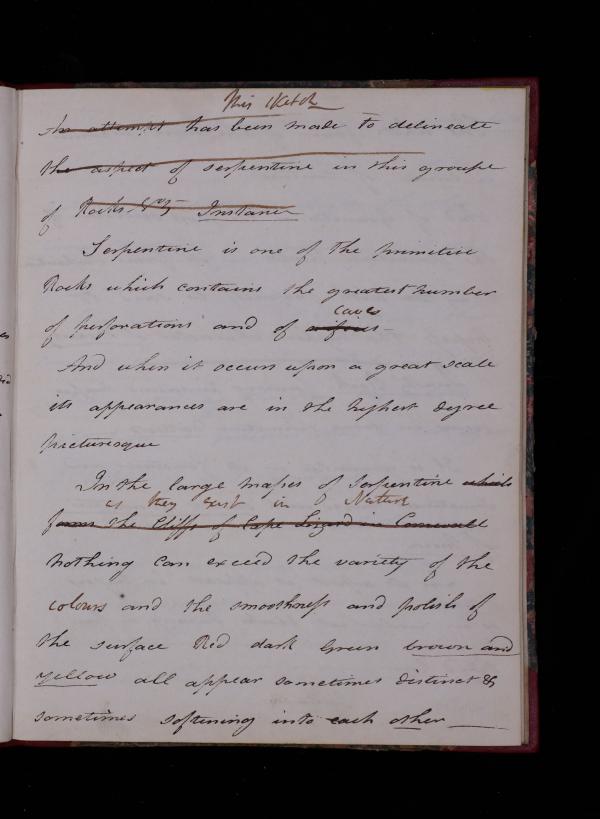 This sketch
An attempt has been made to delineate
the aspect of serpentine in this groupe
of Rocks, &c Instance
Serpentine is one of the primitive
Rocks which contains the greatest number
caves
of perforations and of
And when it occurs upon a great scale
its appearances are in the highest degree
picturesque
In the large masses of Serpentine which
as they exist in Nature
forms the Cliffs of Cape Lizard in Cornwall
nothing can exceed the variety of the
colours and the smoothness and polish of
the surface Red dark Green brown and
yellow all appear sometimes distinct &
sometimes softening into each other